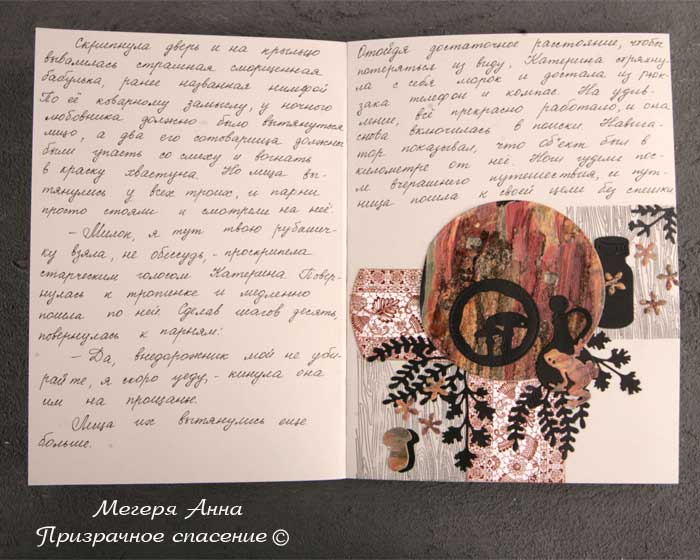 Скрипнула дверь и на крыльцо
вывалилась страшная сморщенная
бабулька, ранее названная нимфой
По её коварному замыслу, у ночного
любовника должно было вытянуться
лицо, а два его сотоварища должны
были упасть со смеху и вогнать
в краску хвастуна. Но лица вы-
тянулись у всех троих, и парни
просто стояли и смотрели на неё.
- Милок, я тут твою рубашеч-
ку взяла, не обессудь, - проскрипела
старческим голосом Катерина Повер-
нулась к тропинке и медленно
пошла по ней. Сделав шагов десять,
повернулась к парням:
- Да, внедорожник мой не уби-
райте, я скоро уеду, - кинула она
им на прощанье.
Лица их вытянулись еще
больше.
Отойдя достаточное расстояние, чтобы
потеряться из виду, Катерина стряхну-
ла с себя морок и достала из рюк-
зака телефон и компас. На удив-
ление, всё прекрасно работало, и она
снова включилась в поиски. Навига-
тор показывал, что объект был в
километре от неё. Ноги гудели пос-
ле вчерашнего путешествия, и пут-
ница пошла к своей цели без спешки
Мегеря Анна
Призрачное спасение ©